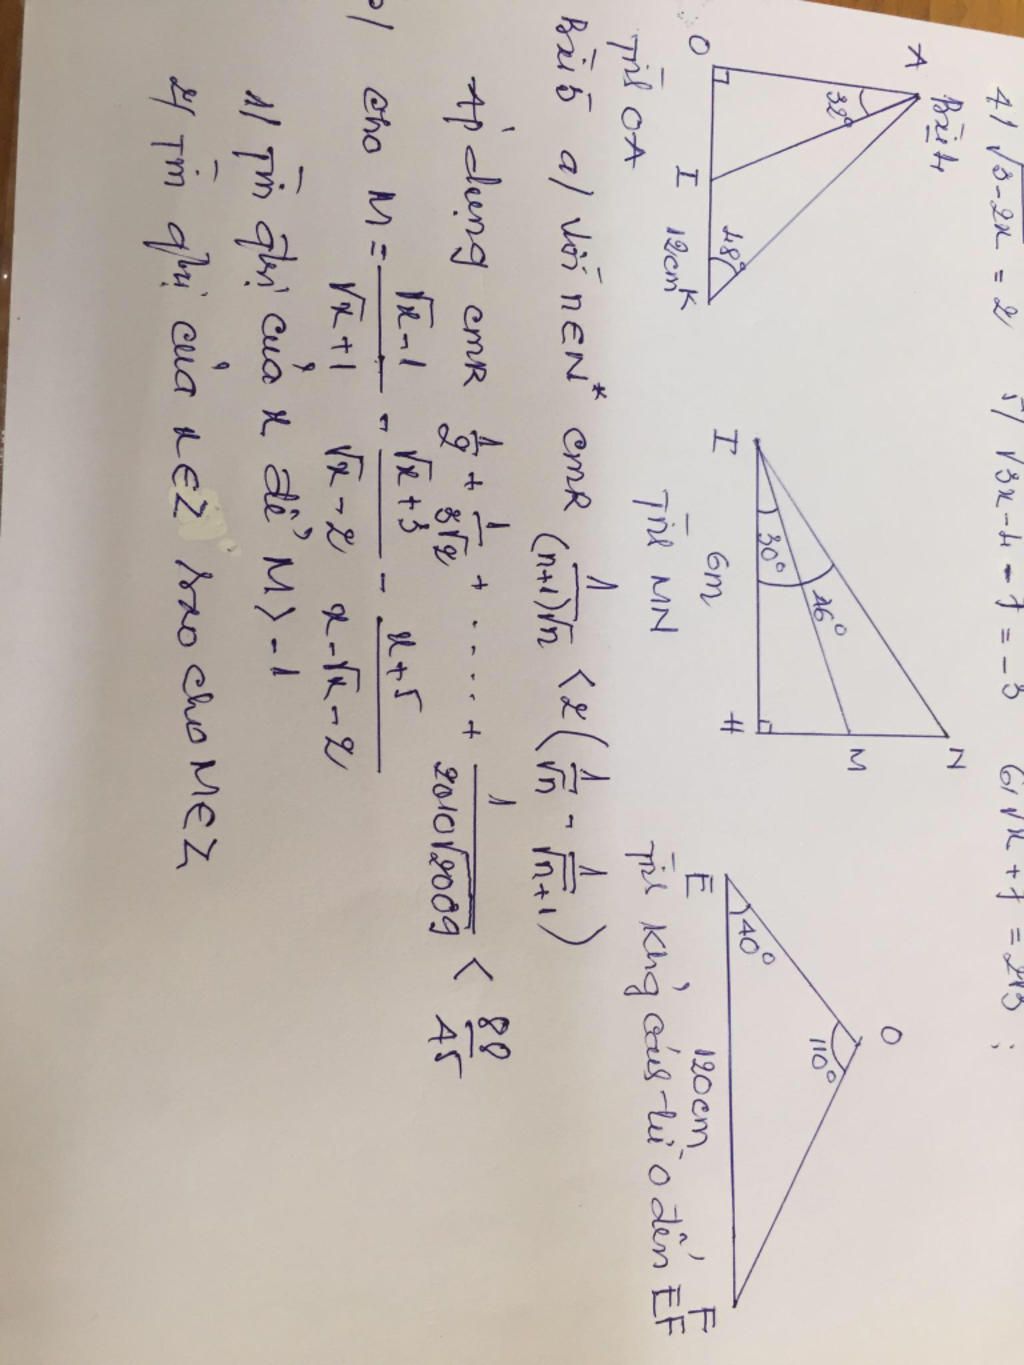 4) √3-2x = 2 5) √3x-4 - 7 = -3 6) √x + 7 =
Bài 4
A
32°
O
I
48°
12cm
K
Tính OA
N
M
46°
30°
I
6m
H
Tính MN
O
110°
E
40°
120cm
F
Tính khg cách từ O đến EF
Bài 5 a) Với n∈N* cmR 1/((n+1)√n) < 2(1/√n - 1/√n+1)
Áp dụng cmR 1/2 + 1/3√2 + ..... + 1/2010√2009 < 88/45
b) cho M = (√x-1)/(√x+1) - (√x+3)/(√x-2) - (x+5)/(x-√x-2)
1) Tìm gtrị của x để M > -1
2) Tìm gtrị của x∈Z sao cho M∈Z